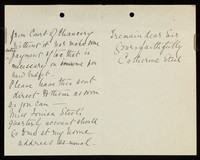 from Court of Chancery
without it nor make some
payment of tax that is
necessary on someone for
new budget.
Please have this sent
direct to them as soon
as you can —
Miss Louisa Steel's
quarterly account should
be sent at my home
address as usual.
I remain dear Sir
Yours faithfully
Catherine Steel